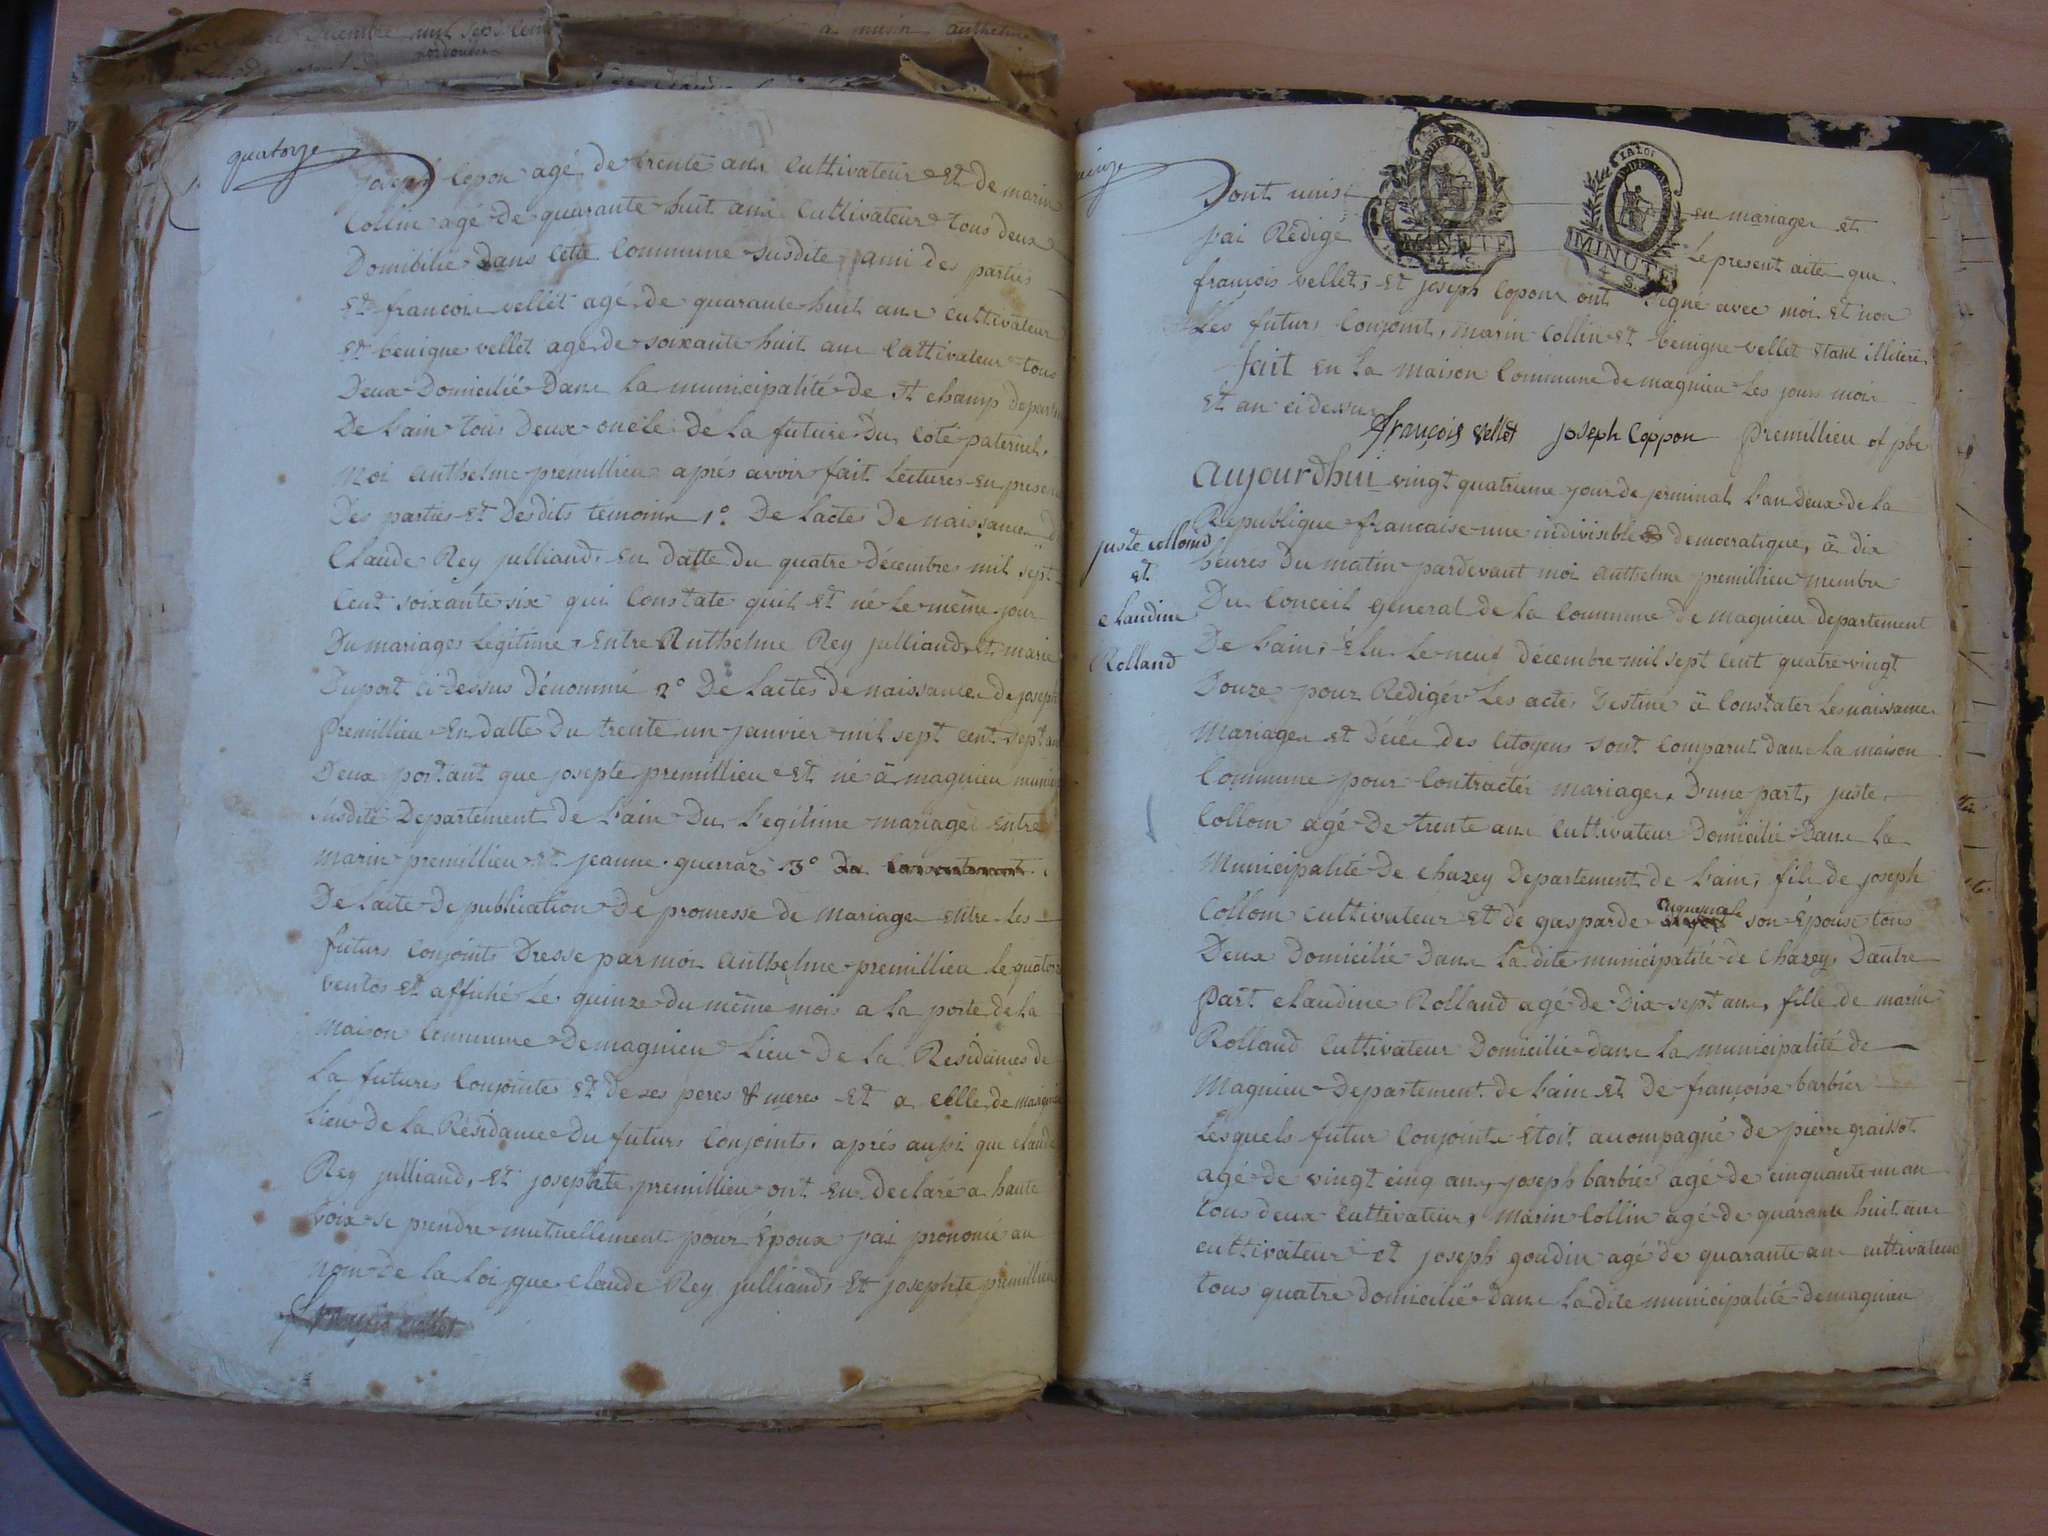 quatorze
joseph Copon agé de trente ans Cultivateur et de marin
Collin agé de quarante huit ans Cultivateur tous deux
Domibilié dans Cette Commune susdite ami des parties
et françois vellet agé de quarante huit ans Cultivateur
et benigne vellet agé de soixante huit ans Cultivateur tous
Deux Domicilié Dans la municipalité de St champ depart
De l'ain tous deux oncle de la future Du coté paternel.
Moi anthelme premillieu aprés avoir fait Lectures en presen
Des parties et Desdits témoins 1° De lactes De naissance d
Claude Rey julliand, en datte du quatre décembre mil sept
Cent soixante six qui Constate quil et né le même jour
Du mariages Legitime, Entre Anthelme Rey julliand, et marie
Duport Ci dessus dénommé 2° De lactes de naissance de joseph
Premillieu en datte Du trente un janvier mil sept cent sept an
Deux portant que josepte premillieu et né à magnieu munic
susdite Departement de l'ain Du Legitime mariage entre
marin premillieu et jeanne guerraz 3° du
De lacte de publication De promesse de mariage entre les
futurs conjoints Dresse par moi anthelme premillieu le quatorze
ventos et affiché Le quinze du même mois a la porte de la
maison Commune De magnieu Lieu De la Residences de
la futures Conjointe et de ses peres & meres et a celle de magnieu
Lieu de la Résidance du futurs Conjoints, aprés aussi que claude
Rey julliand, et josephte premillieu ont en declaré a haute
voix se prendre mutuellement pour Époux j'ai prononcé au
nom de la loi que Claude Rey julliand et josephte premillieu
françois vellet
quinze
Dont unis en mariage et
j'ai Rédigé Le present acte que
LA LOI
MINUTE
4 S.
MINUTE
4 S.
françois vellet, et joseph Copon ont signé avec moi et non
Les futurs Conjoint, marin Collin et benigne vellet étant illiteré.
fait en la maison Commune de magnieu Les jours mois
et an ci dessus
françois vellet joseph Coppon Premillieu of pbe
juste collomb
et
claudine
Rolland
Aujourdhui vingt quatrieme jour de jerminal l'an deux de la
Republique francaise une indivisible democratique, à dix
heures Du matin pardevant moi anthelme premillieu membre
Du Conceil general de la Commune de magnieu departement
De l'ain, élu Le neuf décembre mil sept cent quatre vingt
Douze pour Redigér Les actes Destine à Constater Les naissance
Mariage et Décè des Citoyens sont Comparut dans la maison
Commune pour Contractér mariage, D'une part, juste
Collom agé de trente ans Cultivateur Domicilié Dans la
Municipalité De chazey Departement de l'ain, fils de joseph
Collom cultivateur et de gasparde son Épouse tous
Deux Domicilié Dans La dite municipalité de Chazey, D'autre
Part Claudine Rolland agé de Dix sept ans, fille de marin
Rolland Cultivateur Domicilié dans la municipalité de
Magnieu Departement de l'ain et de françoise barbier
Lesquels futur Conjoints étoit accompagné de pierre graissot
agé de vingt cinq ans, joseph barbier agé de cinquante un an
tous deux Cultivateur, marin Collin agé de quarante huit ans
cultivateur et joseph goudin agé de quarante ans cultivateur
tous quatre domicilié dans La dite municipalité de magnieu